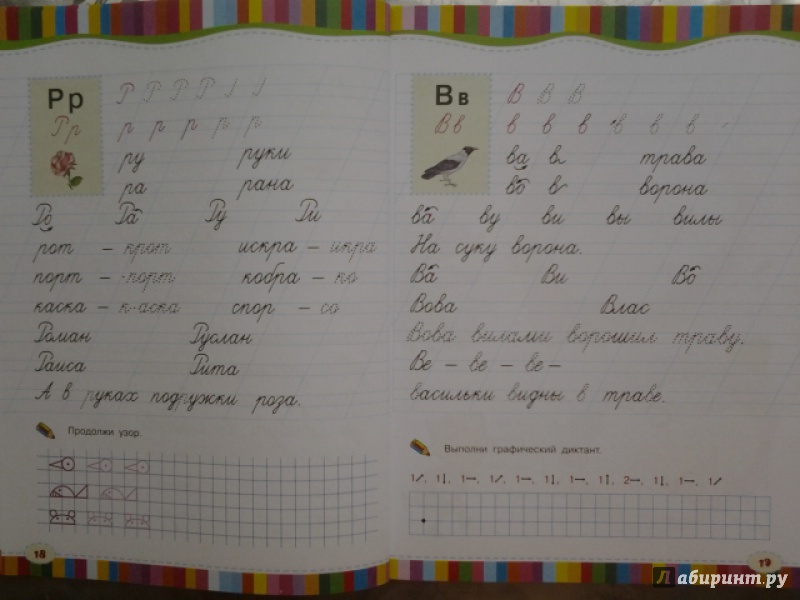 Рр
Р Р Р Р
Рр
р р р р р
ру руки
ра рана
Ро Ра Ру Ри
рот – крот искра – икра
порт – -порт кобра – ко
каска – к-аска спор – со
Роман Руслан
Раиса Рита
А в руках подружки роза.
Продолжи узор.
18
Вв
В В В
Вв
в в в в в в
ва в трава
во в ворона
ва ву ви вы вилы
На суку ворона.
Ва Ви Во
Вова Влас
Вова вилами ворошил траву.
Ве – ве – ве –
васильки видны в траве.
Выполни графический диктант.
1↗, 1↓, 1→, 1↗, 1→, 1↓, 1→, 1↑, 2→, 1↓, 1→, 1↗
19
Лабиринт.ру